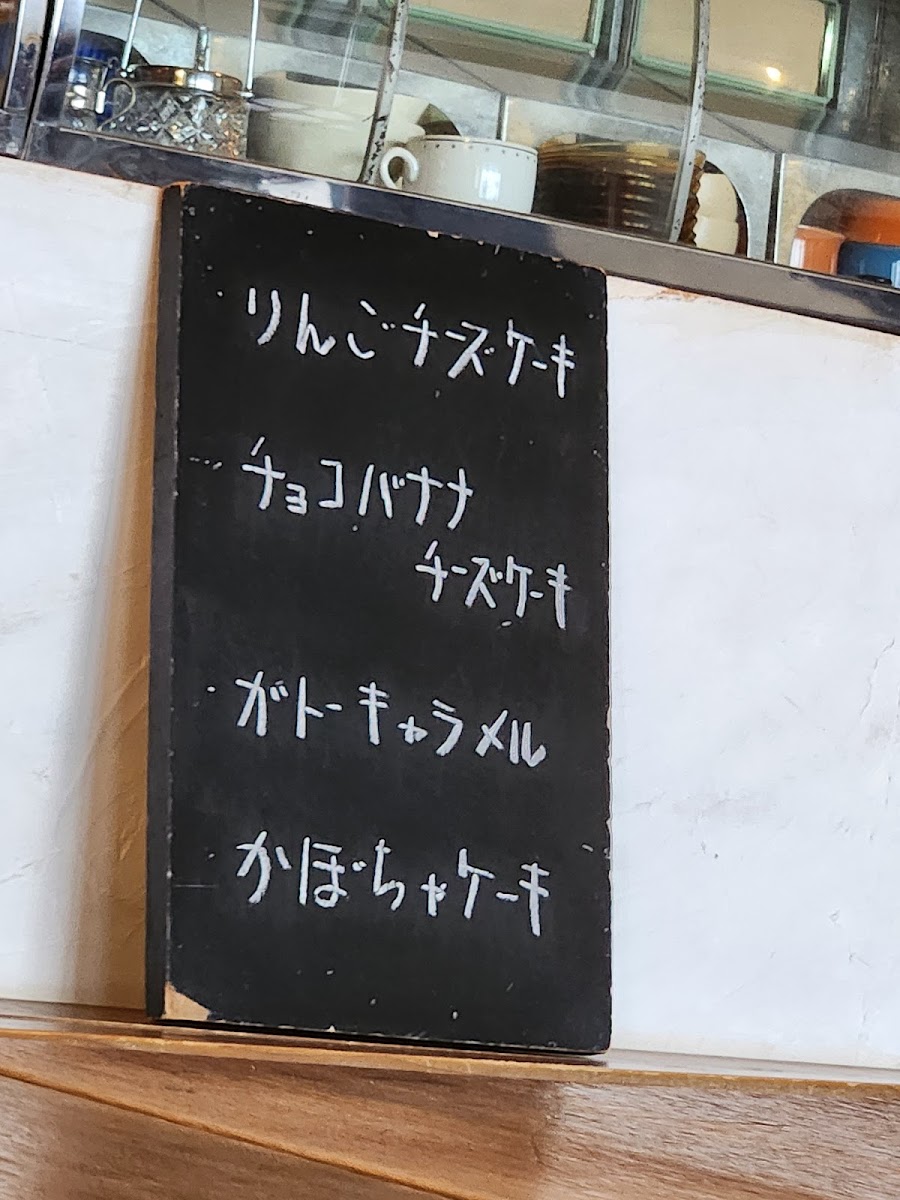 りんごチーズケーキ
チョコバナナ
チーズケーキ
ガトーキャラメル
かぼちゃケーキ